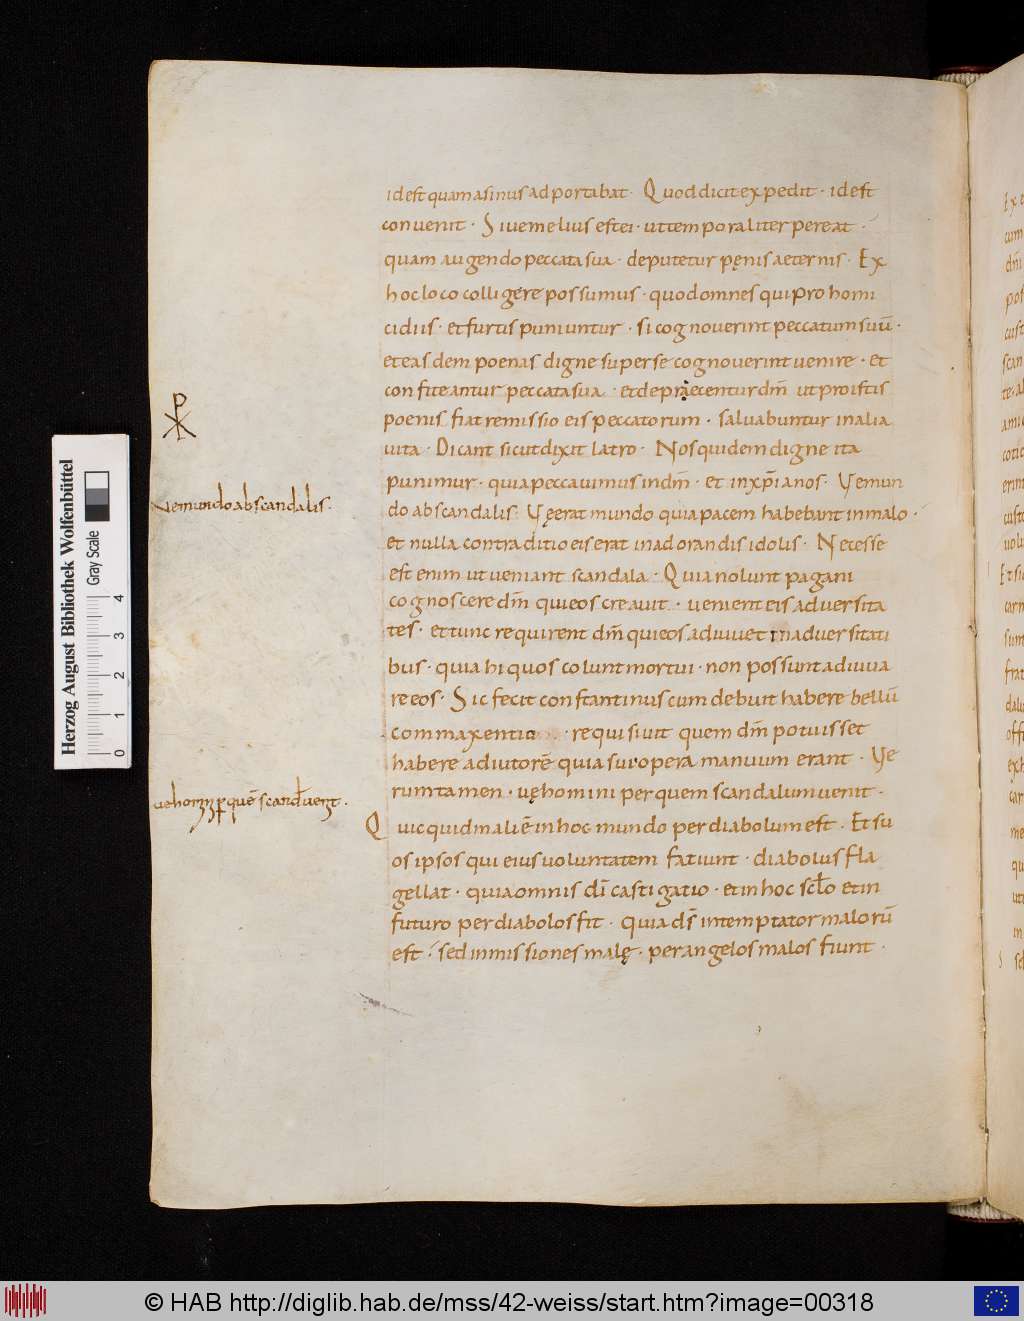 id est quam asinus adportabat · Quod dicit expedit · id est
convenit · Sive melius est ei · ut temporaliter pereat ·
quam augendo peccata sua · deputetur pęnis aeternis · Ex
hoc loco colligere possumus · quod omnes qui pro homi
cidiis · et furtis puniuntur · si cognoverint peccatum suū ·
et easdem poenas digne super se cognoverint venire · et
confiteantur peccata sua · et deprecentur dm̄ ut pro istis
poenis fiat remissio eis peccatorum · salvabuntur in alia
vita · Dicant sicut dixit latro · Nos quidem digne ita
punimur · quia peccavimus in dm̄ · et in xp̄ianos · Ve mun
do ab scandalis · Vę erat mundo quia pacem habebant in malo ·
et nulla contraditio eis erat in adorandis idolis · Necesse
est enim ut veniant scandala · Quia nolunt pagani
cognoscere dm̄ qui eos creavit · venient eis adversita
tes · et tunc requirent dm̄ qui eos adiuvet in adversitati
bus · quia hi quos colunt mortui · non possunt adiuva
re eos · Sic fecit constantinus cum debuit habere bellū
com maxentio · requisivit quem dm̄ potuisset
habere adiutorē quia sui opera manuum erant · Ve
rum tamen · vę homini per quem scandalum venit ·
Quicquid mali ē in hoc mundo per diabolum est · Et su
os ipsos qui eius voluntatem fatiunt · diabolus fla
gellat · quia omnis dī castigatio · et in hoc scło et in
futuro per diabolos fit · quia ds̄ intemptator malorū
est · sed inmissiones malę · per angelos malos fiunt ·
ve mundo ab scandalis ·
Herzog August Bibliothek Wolfenbüttel
Gray Scale
0 1 2 3 4
© HAB http://diglib.hab.de/mss/42-weiss/start.htm?image=00318